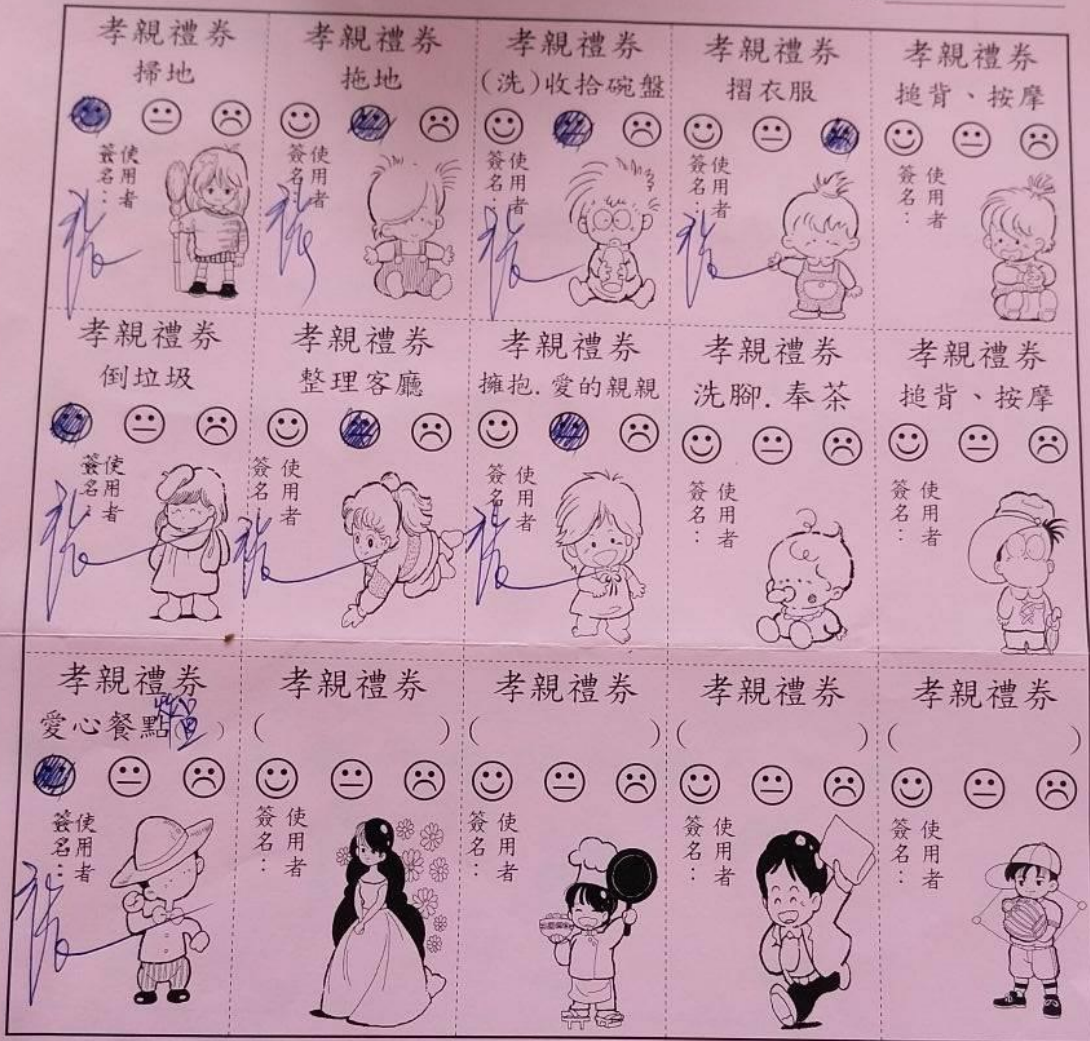 孝親禮券
掃地
使用者
簽名：
孝親禮券
拖地
使用者
簽名：
孝親禮券
(洗)收拾碗盤
使用者
簽名：
孝親禮券
摺衣服
使用者
簽名：
孝親禮券
搥背、按摩
使用者
簽名：
孝親禮券
倒垃圾
使用者
簽名：
孝親禮券
整理客廳
使用者
簽名：
孝親禮券
擁抱.愛的親親
使用者
簽名：
孝親禮券
洗腳.奉茶
使用者
簽名：
孝親禮券
搥背、按摩
使用者
簽名：
孝親禮券
愛心餐點( )
使用者
簽名：
孝親禮券
( )
使用者
簽名：
孝親禮券
( )
使用者
簽名：
孝親禮券
( )
使用者
簽名：
孝親禮券
( )
使用者
簽名：